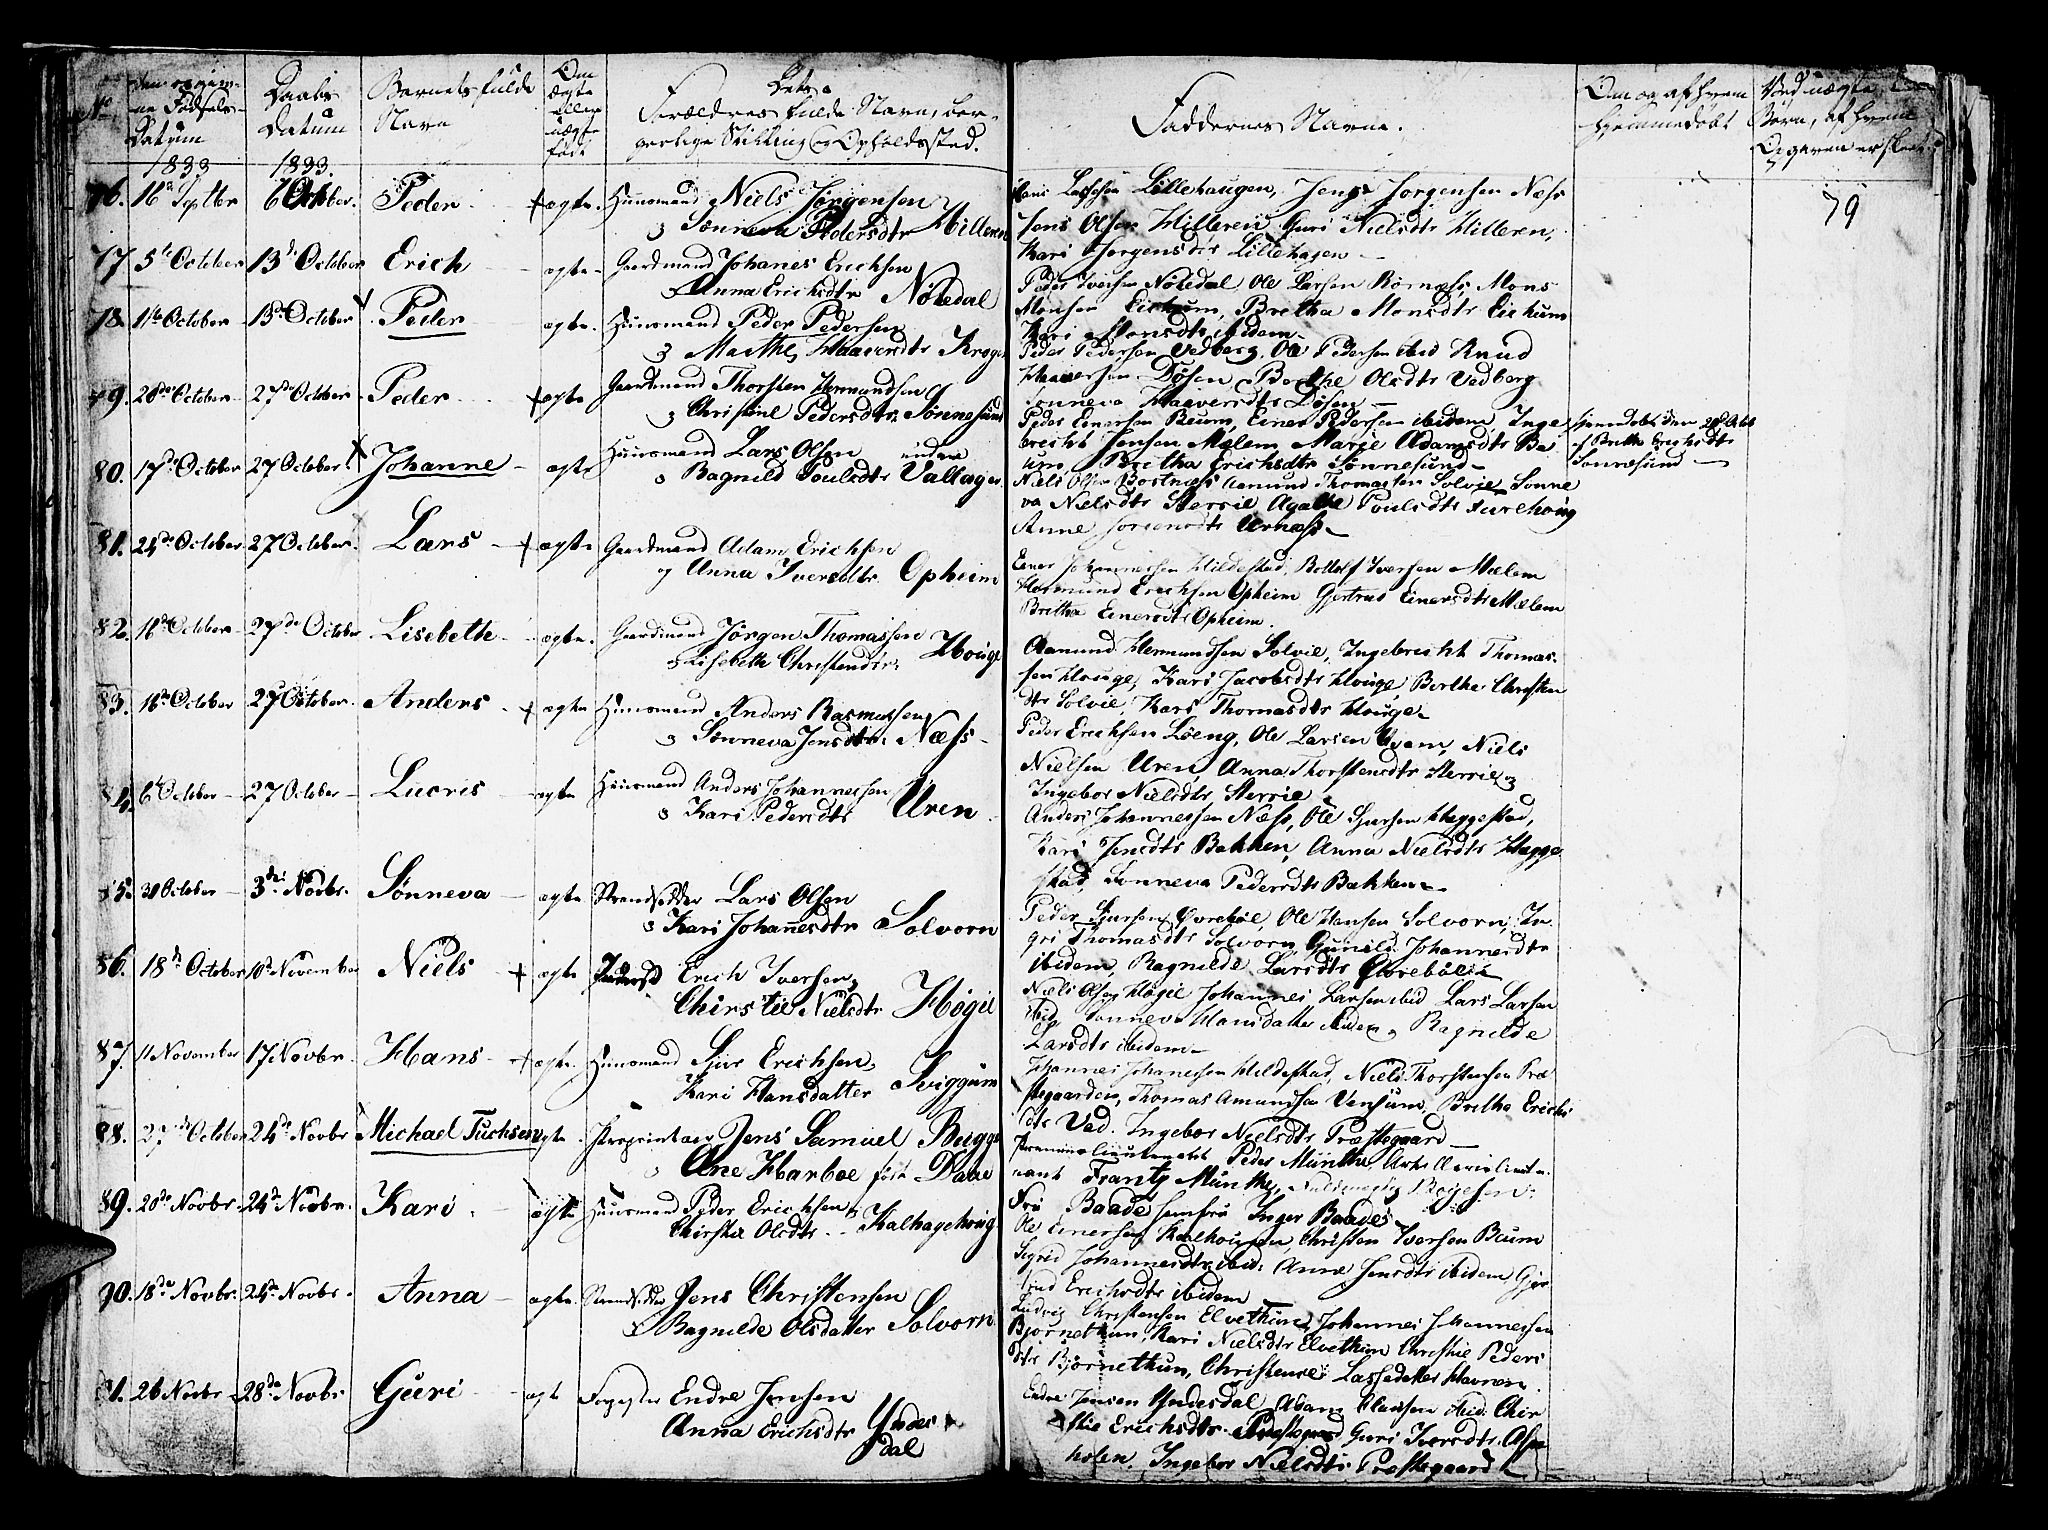 No
Fødsels-
Datum
Daabs
Datum
Barnets fulde
Navn
Om
ægte
eller
uægte
født
Forældres fulde Navn, bor-
gerlige Stilling og Opholdssted.
Faddernes Navne.
Om og af hvem
hjemmedøbt
Ved uægte
Børn, af hvem
Opgaven er skeet
1833
1833.
79
76. 16 Septber 6 Octobr. Peder ægte. Huusmand Niels Jørgensen
Sønneva Pedersdtr Hilleren
Lillehaugen, Jens Jørgensen Næss
Jens Olsen Hilleren Guri Nielsdtr Hilleren,
Kari Jørgensdtr Lillehagen
77. 5te October 13de October Erich ægte Gaardmand Johanes Erichsen
Anna Erichsdtr Nøtedal
Peder Iversen Nøtedal, Ole Larsen Mons
Monsen Eickum, Bretha Monsdtr Eickum
Kari Monsdtr ibidem
78. 11te October 13de October Peder ægte. Huusmand Peder Pedersen
Marthe Haaversdtr Kroge
Peder Pedersen Vedberg, Ole Pedersen ibid Knud
Haaversen Døsen, Berthe Olsdtr Vedberg
Sonneva Haaversdtr Døsen
79. 20de October 27de October Peder ægte Gaardmand Thorsten Hermundsen
Christine Pedersdtr Sønnesund
Peder Einersen Beum, Einer Pedersen ibidem, Inge
brecht Jensen Mælem Marie Adamsdtr Be
um, Bretha Erichsdtr Sønnesund
Bretha Erichsdtr
Sonnesund
80. 17de October 27 October. Johanne ægte Huusmand Lars Olsen
Ragnild Poulsdtr Vallager
Niels Olsen Bostnæs Aamund Thomassen Solvie Sonne
va Nielsdtr Herrie Agathe Poulsdtr Furehoug
Anne Urnæss
81. 24de October 27 October. Lars ægte Gaardmand Adam Erichsen
og Anna Iversdtr. Opheim
Einer Johannessen Hildestad, Bottolf Iversen Mælem
Hermund Erichsen Opheim Gjertrud Einersdtr Mælem
Bretha Einersdtr Opheim.
82. 16de October 27de October Lisebethe ægte. Gaardmand Jørgen Thomassen
Lisebethe Christensdtr. Houge
Aamund Hermundsen Solvie, Ingebrecht Thomas-
sen Houge, Kari Jacobsdtr Houge, Berthe Christen
dtr Solvie, Kari Thomasdtr Houge
83. 16de October 27 October. Anders ægte Huusmand Anders Rasmussen
Sønneva Jensdtr. Næss
Peder Erichsen Løeng, Ole Larsen Kvam, Niels
Nielsen Uren, Anna Thorstensdtr Herrie
Ingebor Nielsdtr Herrie
84. 6te October 27 October Lucris ægte Huusmand Anders Johannessen
Kari Pedersdtr Uren
Anders Johannessen Næss, Ole Sjursen Heggestad,
Kari Jensdtr Bakken, Anna Nielsdtr Hegge
stad, Sonneva Pedersdtr Bakken
85. 3 October 3de Novbr. Sønneva ægte Strandsidder Lars Olsen
Kari Johannesdtr Solvorn
Peder Sjursen Qvrebøe, Ole Hansen Solvorn, In
gri Thomasdtr Solvorn, Gunild Johannesdtr
ibidem, Ragnilde Larsdtr
86. 18de October 10de November Niels ægte Erich Iversen
Chirstie Nielsdtr Høgie
Niels Olsen Høgie Johannes Larsen ibid Lars Larsen
ibid, Sonneva Hansdatter ibidem Ragnilde
Larsdtr ibidem
87. 11 November 17 Novbr. Hans ægte. Huusmand Sjur Erichsen
Kari Hansdatter Sviggum
Johannes Johanesen Hildestad, Niels Thorstensen Præ
stegaarden, Thomas Amundsen Vensum, Bretha Erichs
dtr Vad. Ingebor Nielsdtr Præstegaard
88. 27de October 24de Novbr Michael Fuchsen ægte. Proprietær Jens Samuel Bugge
Ane Harboe født Daae
Premierlieutenant Peder Münthe Artillerielieute-
nant Frantz Münthe, Bøyesen
Fru Baade Jomfru Inger Baade
89. 20de Novbr. 24de Novbr. Kari ægte Huusmand Peder Erichsen
Chirstie Olsdtr Kalhagehoug
Ole Einersen Kalhougen, Christen Iversen Beum
Sigrid Johannesdtr ibid: Anne Jensdtr ibidem Gjer
trud Erichsdtr ibidem
90. 18de Novbr. 24de Novbr. Anna ægte. Strandsidder Jens Christensen
Ragnilde Olsdatter Solvorn.
Ludvig Christensen Elvethun, Johannes Johannessen
Bjørnethun, Kari Nielsdtr Elvethun Christie Peders
dtr Bjørnethun, Christense Lassedatter Havnen.
91. 26 Novbr 28de Novbr Guri ægte Endre Jensen
Anna Erichsdtr Yndes
dal
Endre Jensen Yndesdal, Adam Clausen ibid: Chir
stie Erichsdtr Præstegaard Guri Iversdtr.
holen. Ingebor Nielsdtr Præstegaard